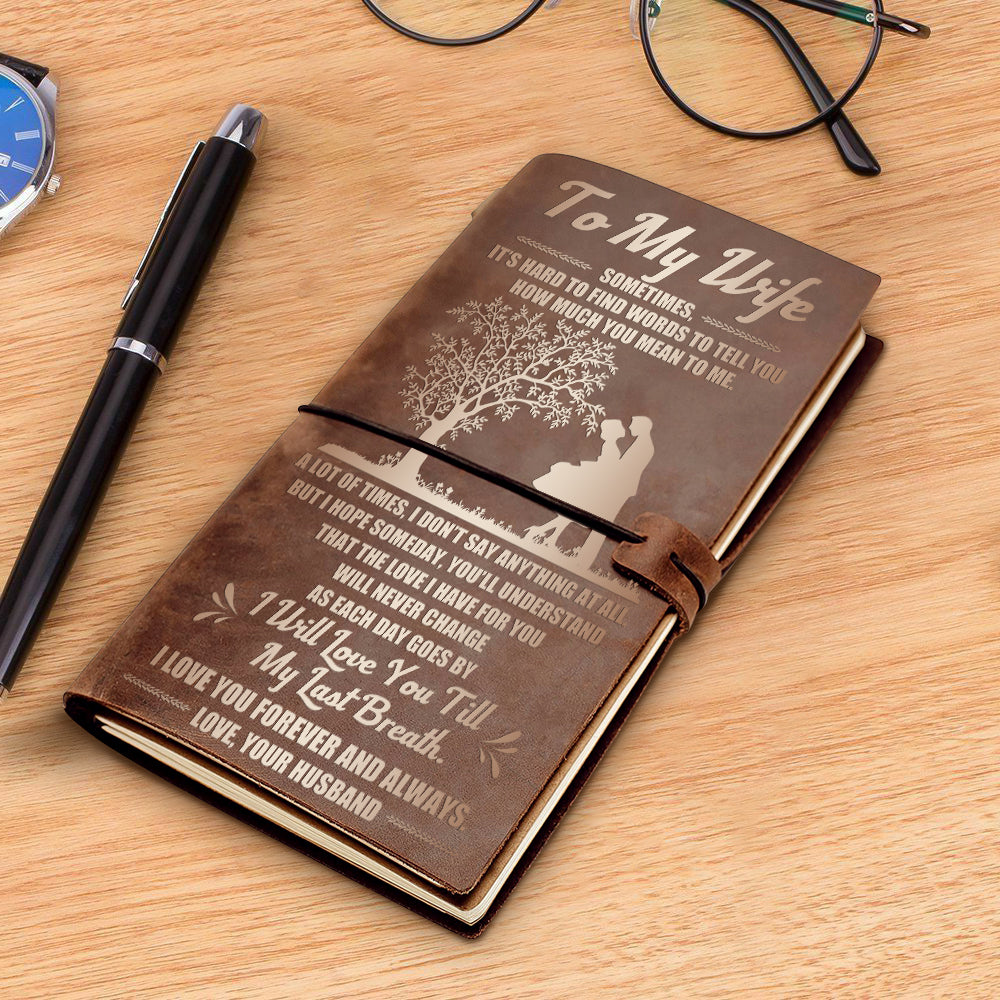 To My Wife
SOMETIMES,
IT'S HARD TO FIND WORDS TO TELL YOU
HOW MUCH YOU MEAN TO ME.
A LOT OF TIMES, I DON'T SAY ANYTHING AT ALL
BUT I HOPE SOMEDAY, YOU'LL UNDERSTAND
THAT THE LOVE I HAVE FOR YOU
WILL NEVER CHANGE
AS EACH DAY GOES BY
I Will Love You Till
My Last Breath.
I LOVE YOU FOREVER AND ALWAYS.
LOVE, YOUR HUSBAND